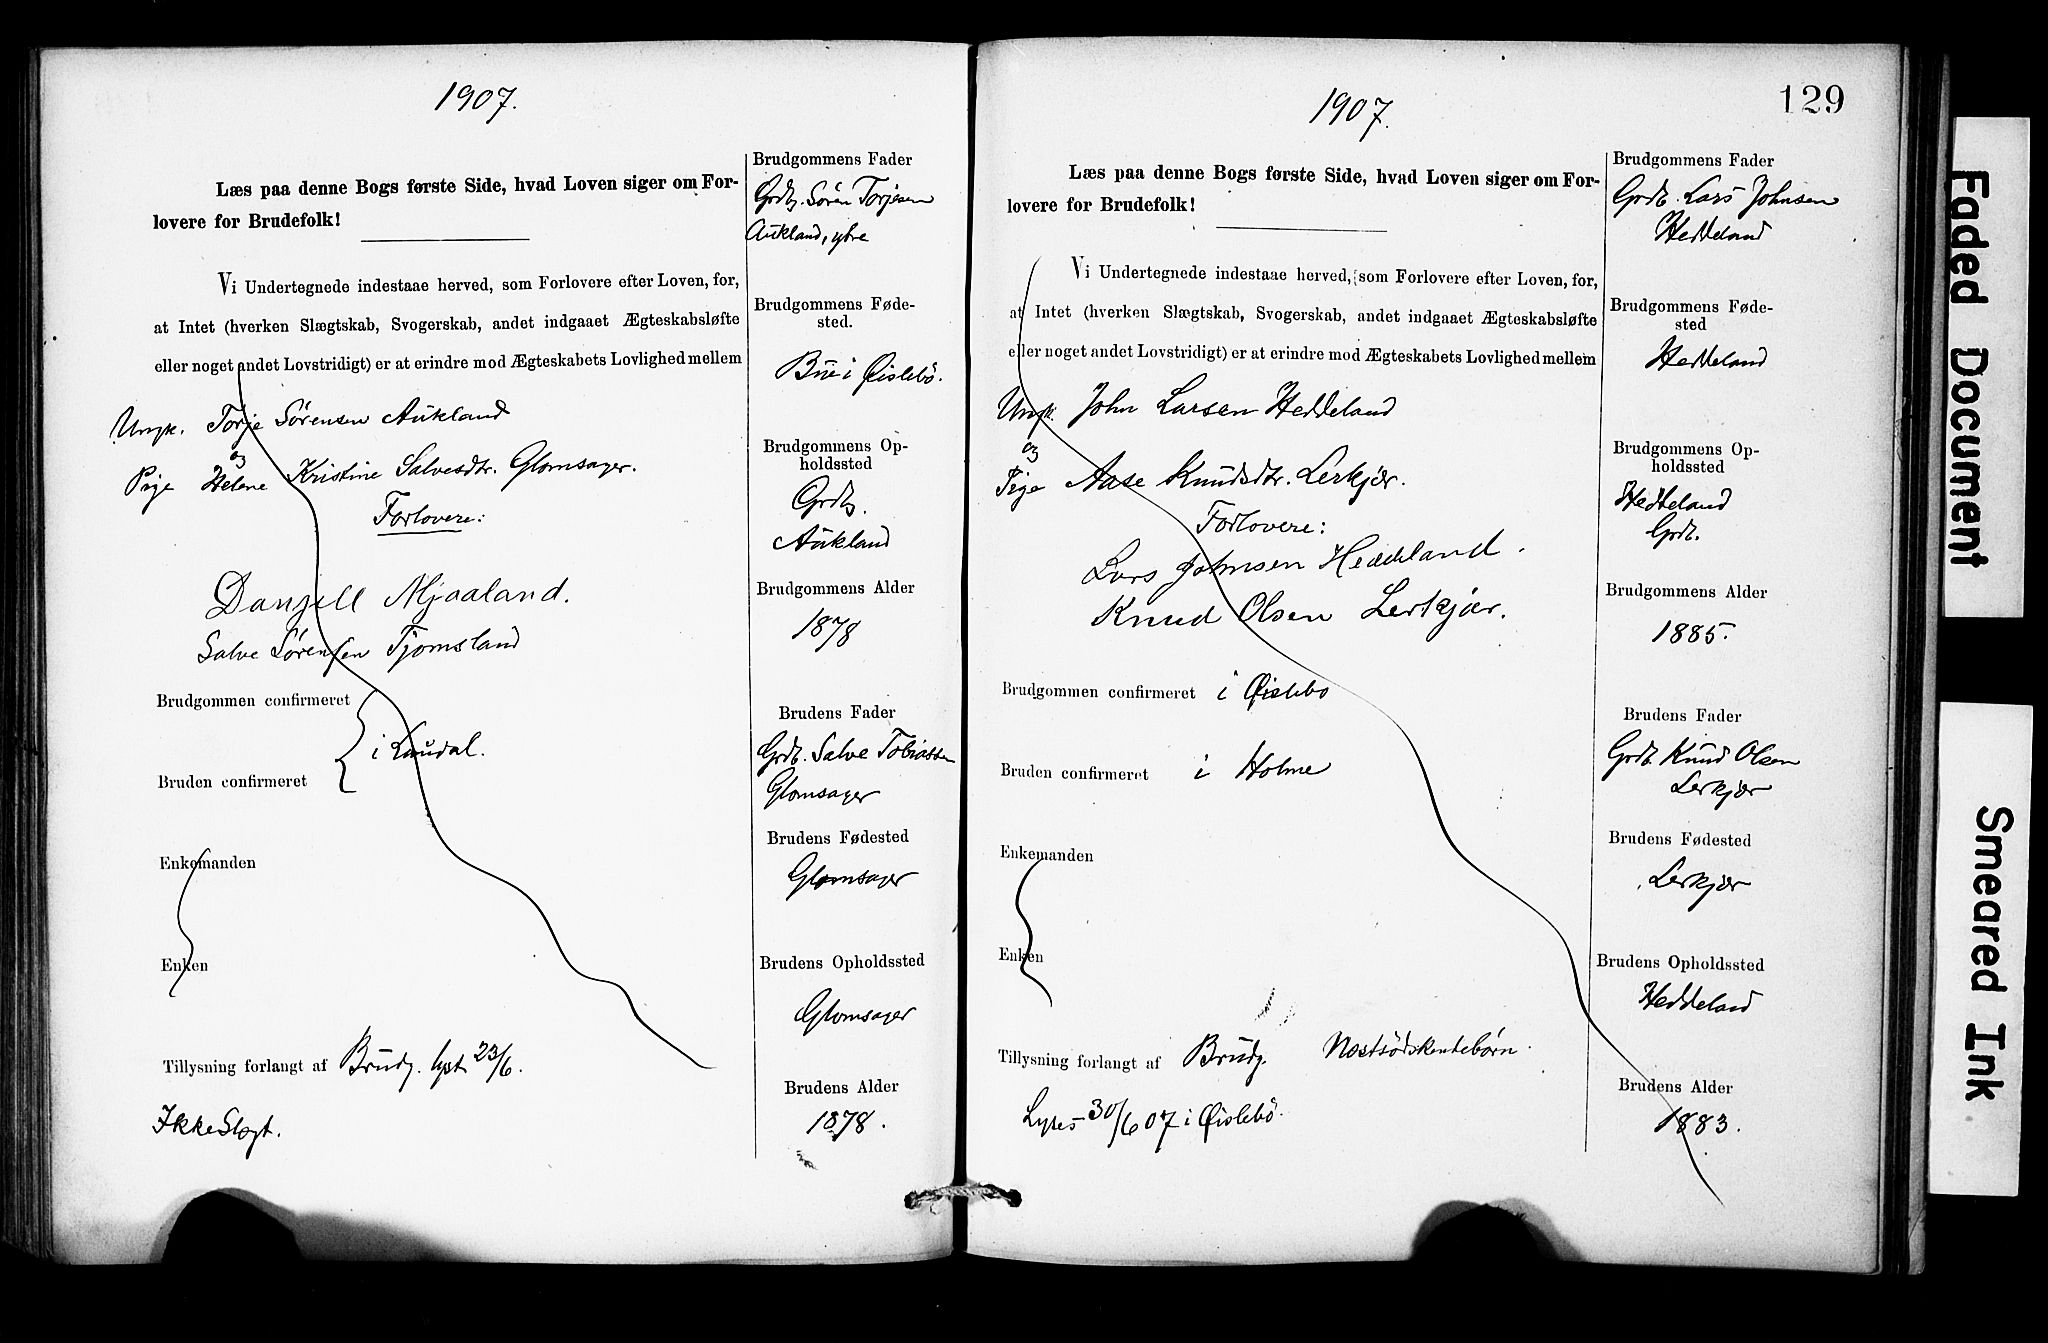 1907.
Læs paa denne Bogs første Side, hvad Loven siger om For-
lovere for Brudefolk!
Vi Undertegnede indestaae herved, som Forlovere efter Loven, for,
at Intet (hverken Slægtskab, Svogerskab, andet indgaaet Ægteskabsløfte
eller noget andet Lovstridigt) er at erindre mod Ægteskabets Lovlighed mellem
Ungk. Torje Sörensen Aukland
og
Pige Helene Kristine Salvesdtr. Glomsager.
Forlovere:
Danjell Mjaaland.
Salve Sørensen Tjomsland
Brudgommen confirmeret
i Laudal.
Bruden confirmeret
Enkemanden
Enken
Tillysning forlangt af Brudg. lyst 23/6.
Ikke Slægt.
Brudgommens Fader
Grdb. Sören Torjesen
Aukland, ytre
Brudgommens Føde-
sted.
Bue i Øislebö.
Brudgommens Op-
holdssted
Grdb.
Aukland
Brudgommens Alder
1878
Brudens Fader
Grdb. Salve Tobiassen
Glomsager
Brudens Fødested
Glomsager
Brudens Opholdssted
Glomsager
Brudens Alder
1878.
129
1907.
Læs paa denne Bogs første Side, hvad Loven siger om For-
lovere for Brudefolk!
Vi Undertegnede indestaae herved, som Forlovere efter Loven, for,
at Intet (hverken Slægtskab, Svogerskab, andet indgaaet Ægteskabsløfte
eller noget andet Lovstridigt) er at erindre mod Ægteskabets Lovlighed mellem
Ungk. John Larsen Heddeland
og
Pige Aase Knudsdtr. Lerkjær.
Forlovere:
Lars Johnsen Heddeland.
Knud Olsen Lerkjær.
Brudgommen confirmeret i Øislebo
Bruden confirmeret i Holme
Enkemanden
Enken
Tillysning forlangt af Brudg. Næstsödskendebørn.
Lyses 30/6 07 i Øislebö.
Brudgommens Fader
Grdb. Lars Johnsen
Heddeland
Brudgommens Føde-
sted
Heddeland
Brudgommens Op-
holdssted
Heddeland
Grdb.
Brudgommens Alder
1885.
Brudens Fader
Grdb. Knud Olsen
Lerkjær
Brudens Fødested
Lerkjær
Brudens Opholdssted
Heddeland
Brudens Alder
1883.
Faded Document
Smeared Ink